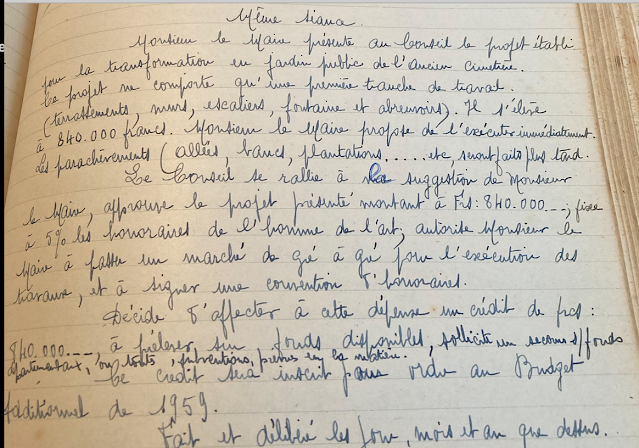 Même séance.
Monsieur le Maire présente au Conseil le projet établi
pour la transformation en jardin public de l'ancien cimetière.
Ce projet ne comporte qu'une première tranche de travail.
(terrassements, murs, escaliers, fontaine et abreuvoirs). Il s'élève
à 840.000 francs. Monsieur le Maire propose de l'exécuter immédiatement.
Les parachèvements (allées, bancs, plantations.....etc, seront faits plus tard.
Le Conseil se rallie à la suggestion de Monsieur
le Maire, approuve le projet présenté montant à Frs: 840.000---; fixe
à 5% les honoraires de l'homme de l'art; autorise Monsieur le
Maire à passer un marché de gré à gré pour l'exécution des
travaux, et à signer une convention d'honoraires.
Décide d'affecter à cette dépense un crédit de frcs:
840.000---, à prélever sur fonds disponibles, sollicite un secours s/fonds
départementaux, ou toutes subventions, prévues en la matière.
Ce crédit sera inscrit pour ordre au Budget
additionnel de 1959.
Fait et délibéré les jour, mois et an que dessus.